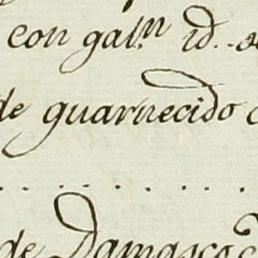 con gal.n id.
de guarnecido
de Damasco